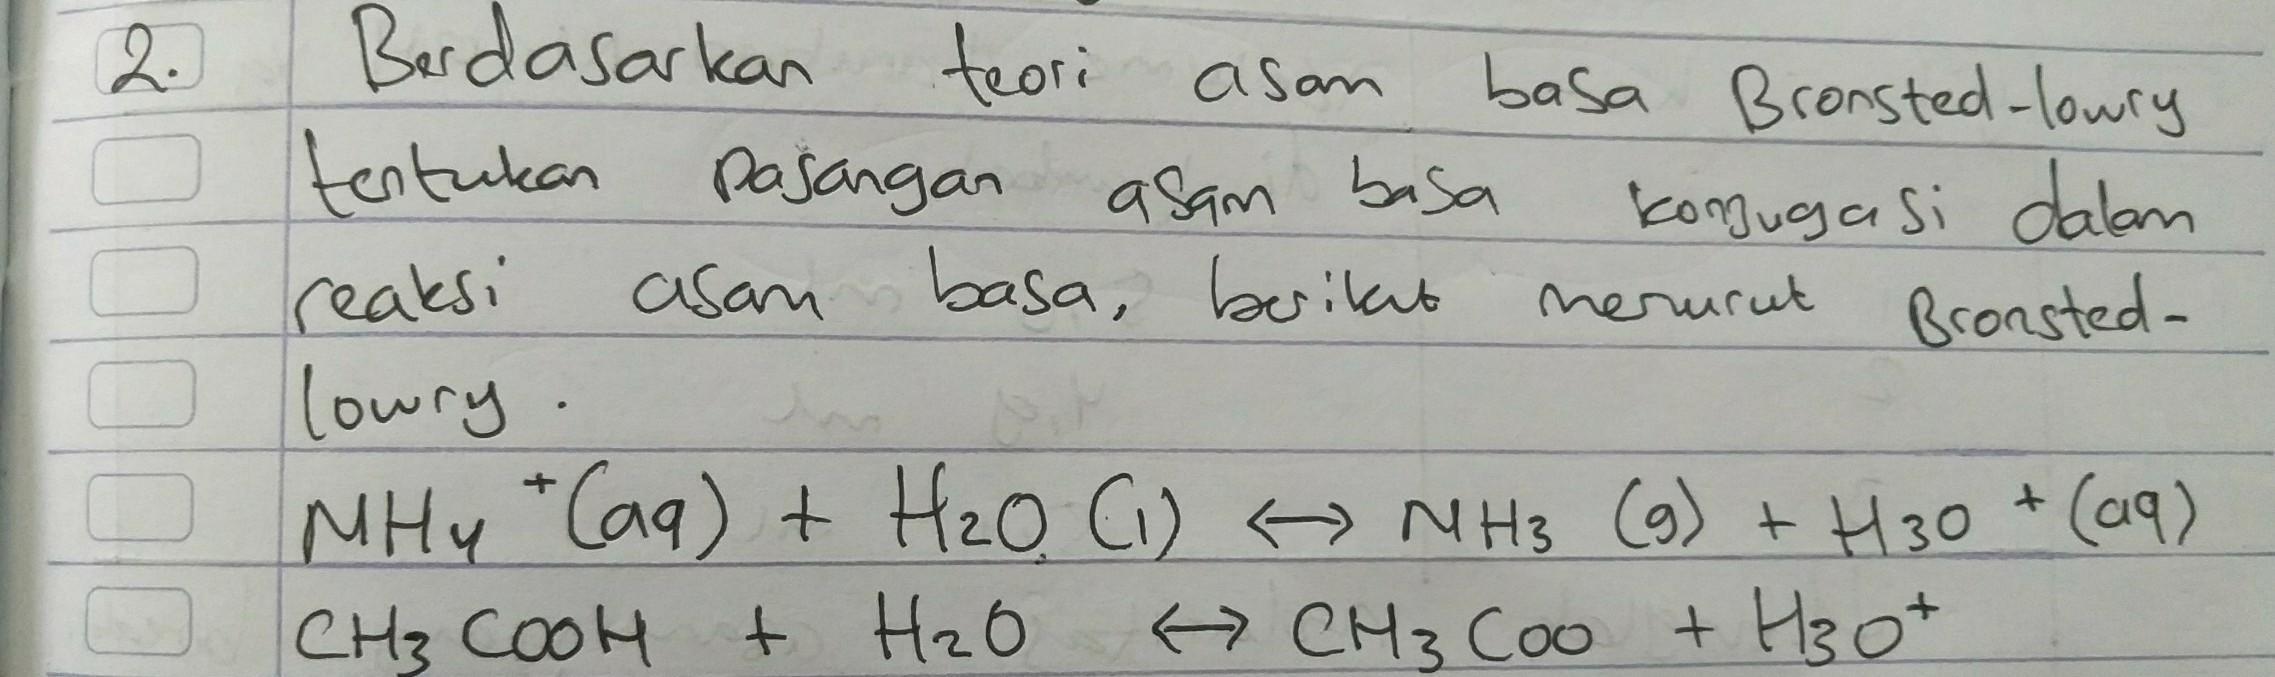 2. Berdasarkan teori asam basa Bronsted-lowry
tentukan pasangan asam basa konjugasi dalam
reaksi asam basa, berikut menurut Bronsted-
lowry.
NH4 +(aq) + H2O (l) <-> NH3 (g) + H3O + (aq)
CH3COOH + H2O <-> CH3COO + H3O+